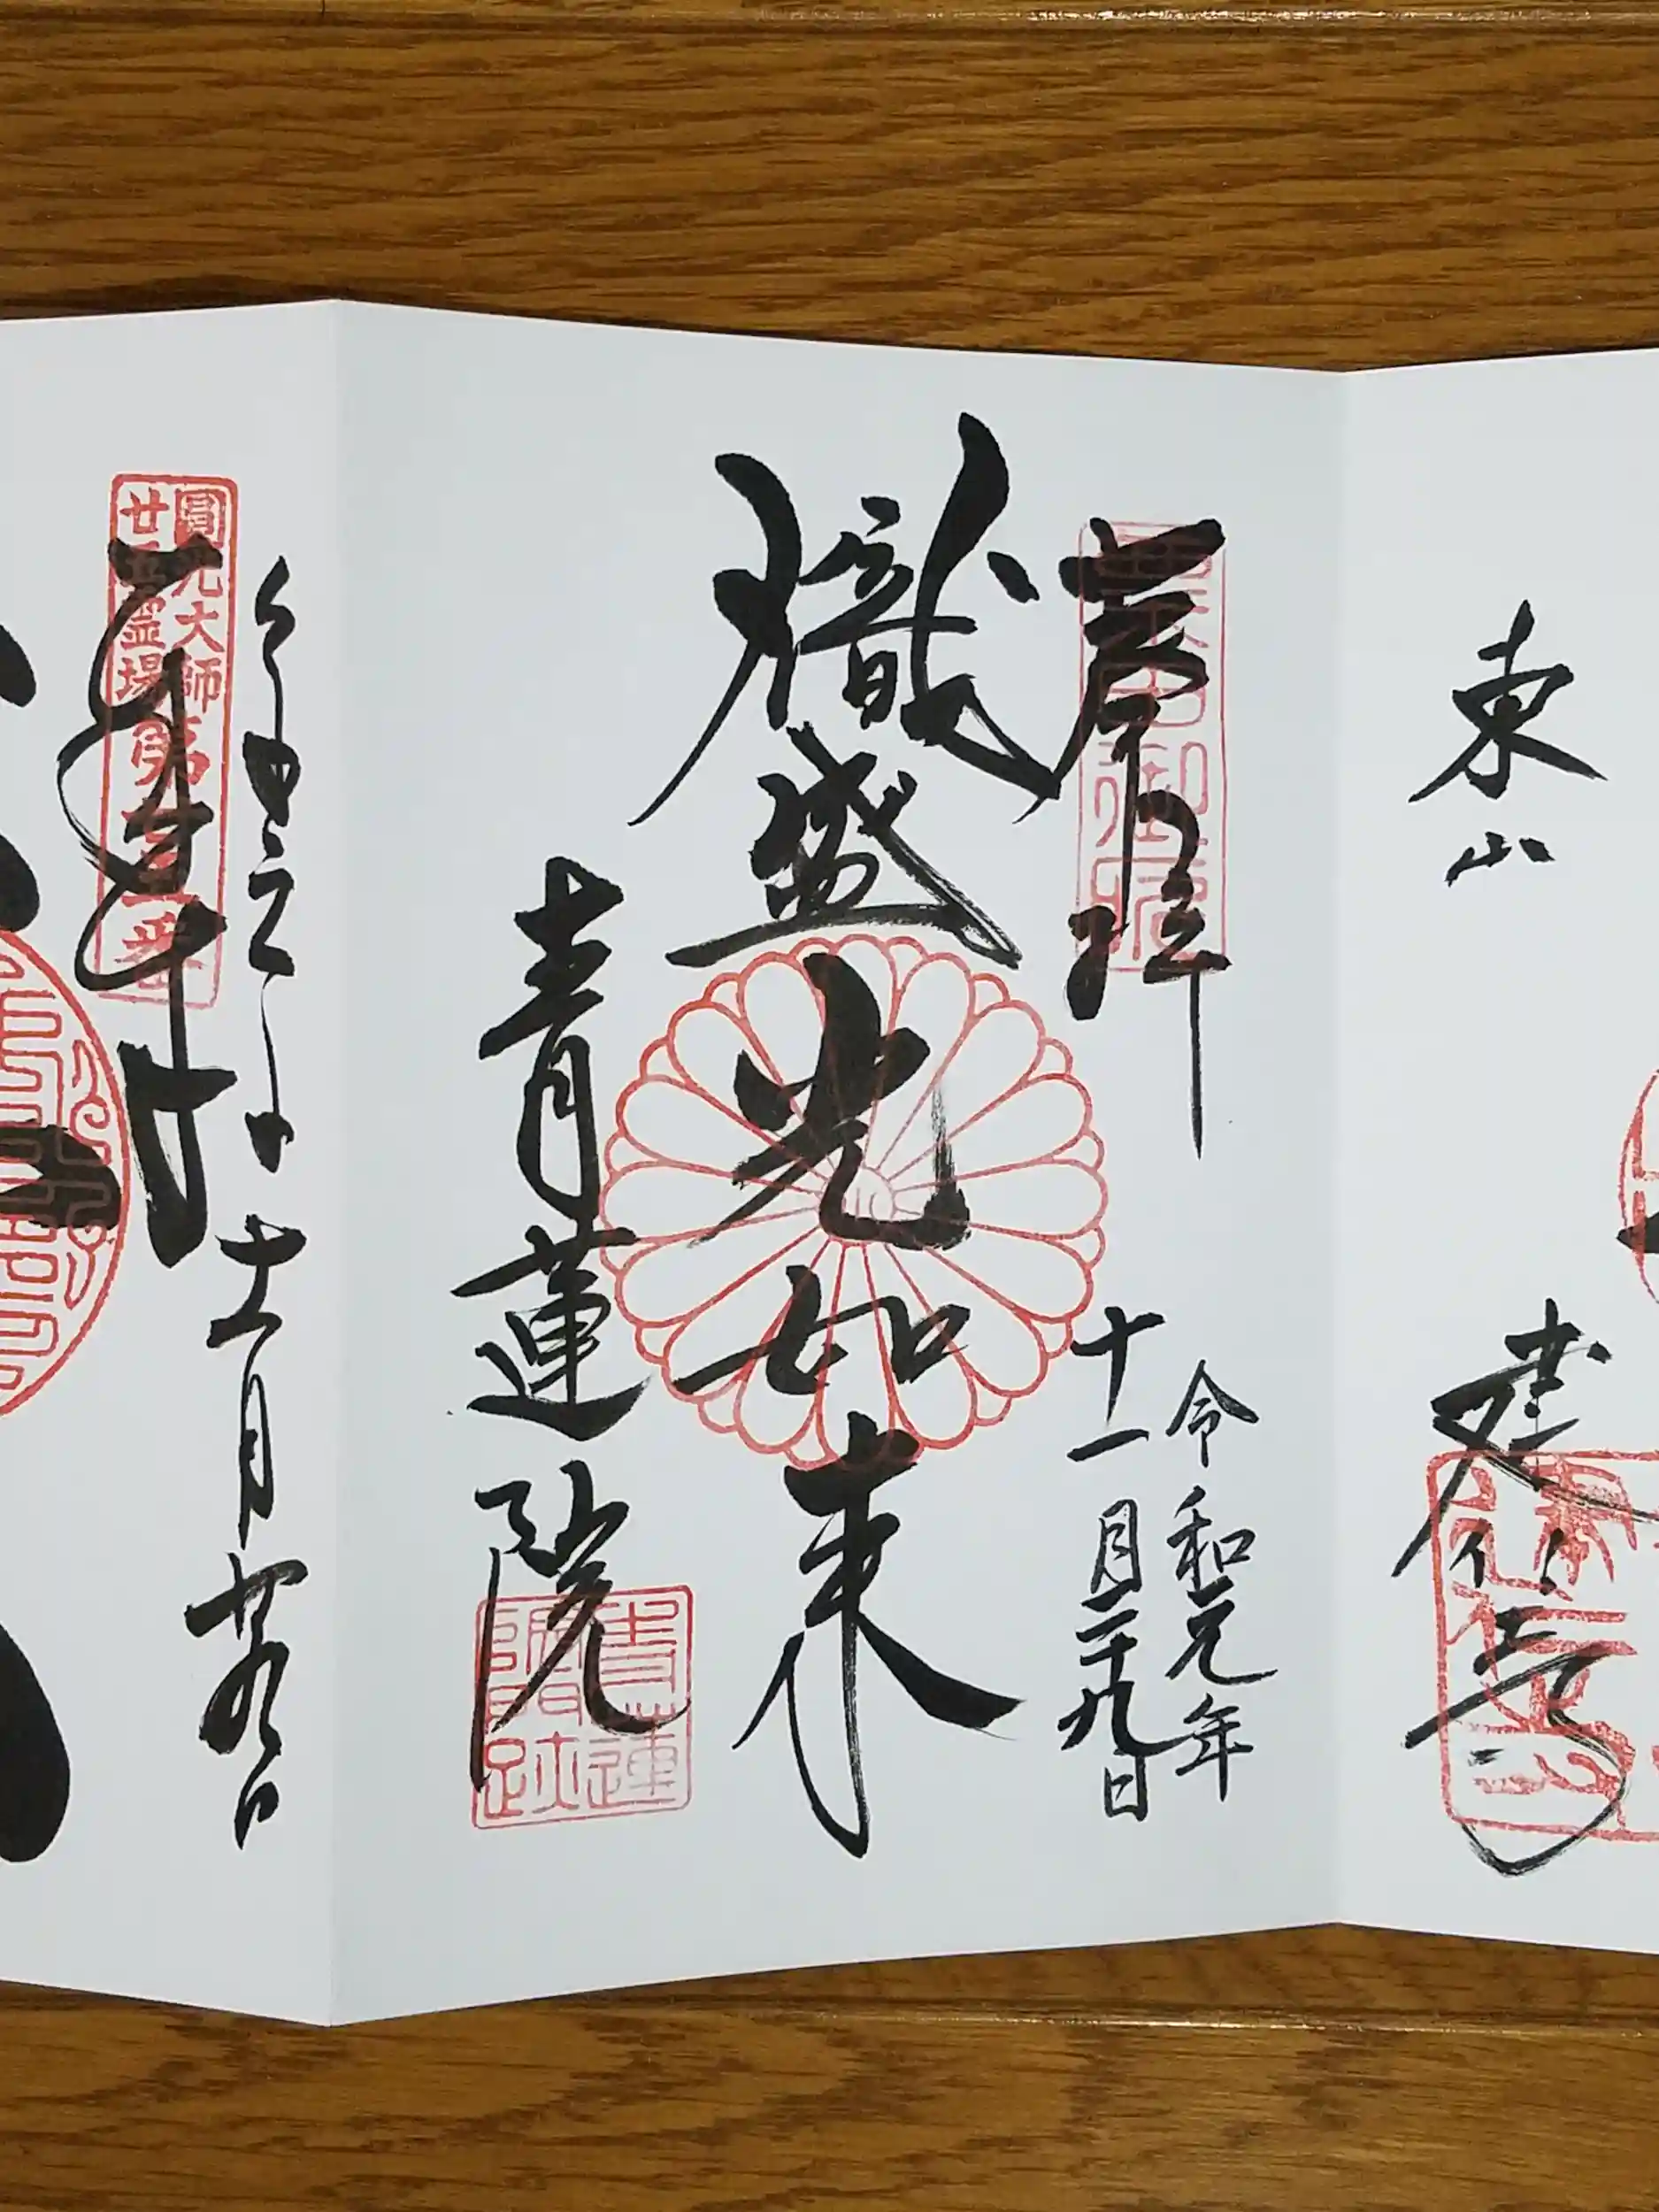 東山
建仁寺
奉拝
粟田御所
令和元年
十一月二十九日
熾盛光如来
青蓮院
青蓮院門跡
令和元年
十一月廿九日
奉拝
圓光大師
廿五霊場第
番